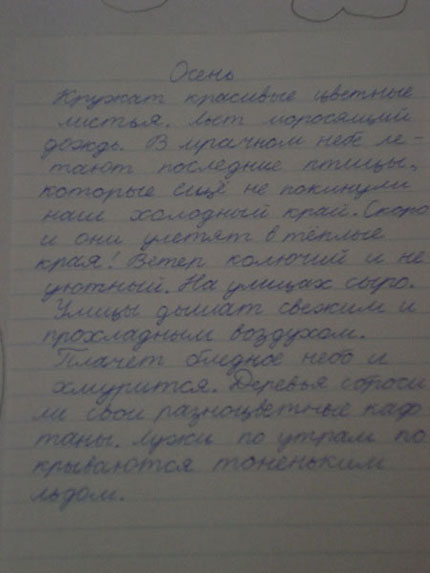 Осень
Кружат красивые цветные
листья. Льёт моросящий
дождь. В мрачном небе ле-
тают последние птицы,
которые ещё не покинули
наш холодный край. Скоро
и они улетят в тёплые
края! Ветер колючий и не
уютный. На улицах сыро.
Улицы дышат свежим и
прохладным воздухом.
Плачет бледное небо и
хмурится. Деревья сброси
ли свои разноцветные каф
таны. Лужи по утрам по
крываются тоненьким
льдом.